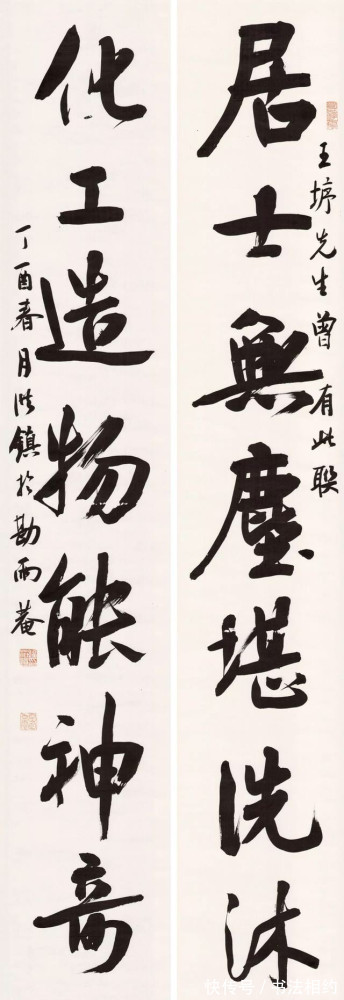 居士無塵堪洗沐
王垿先生曾有此聯
化工造物能神奇
丁酉春月洪鎮於勘雨菴
快传号/书法相约